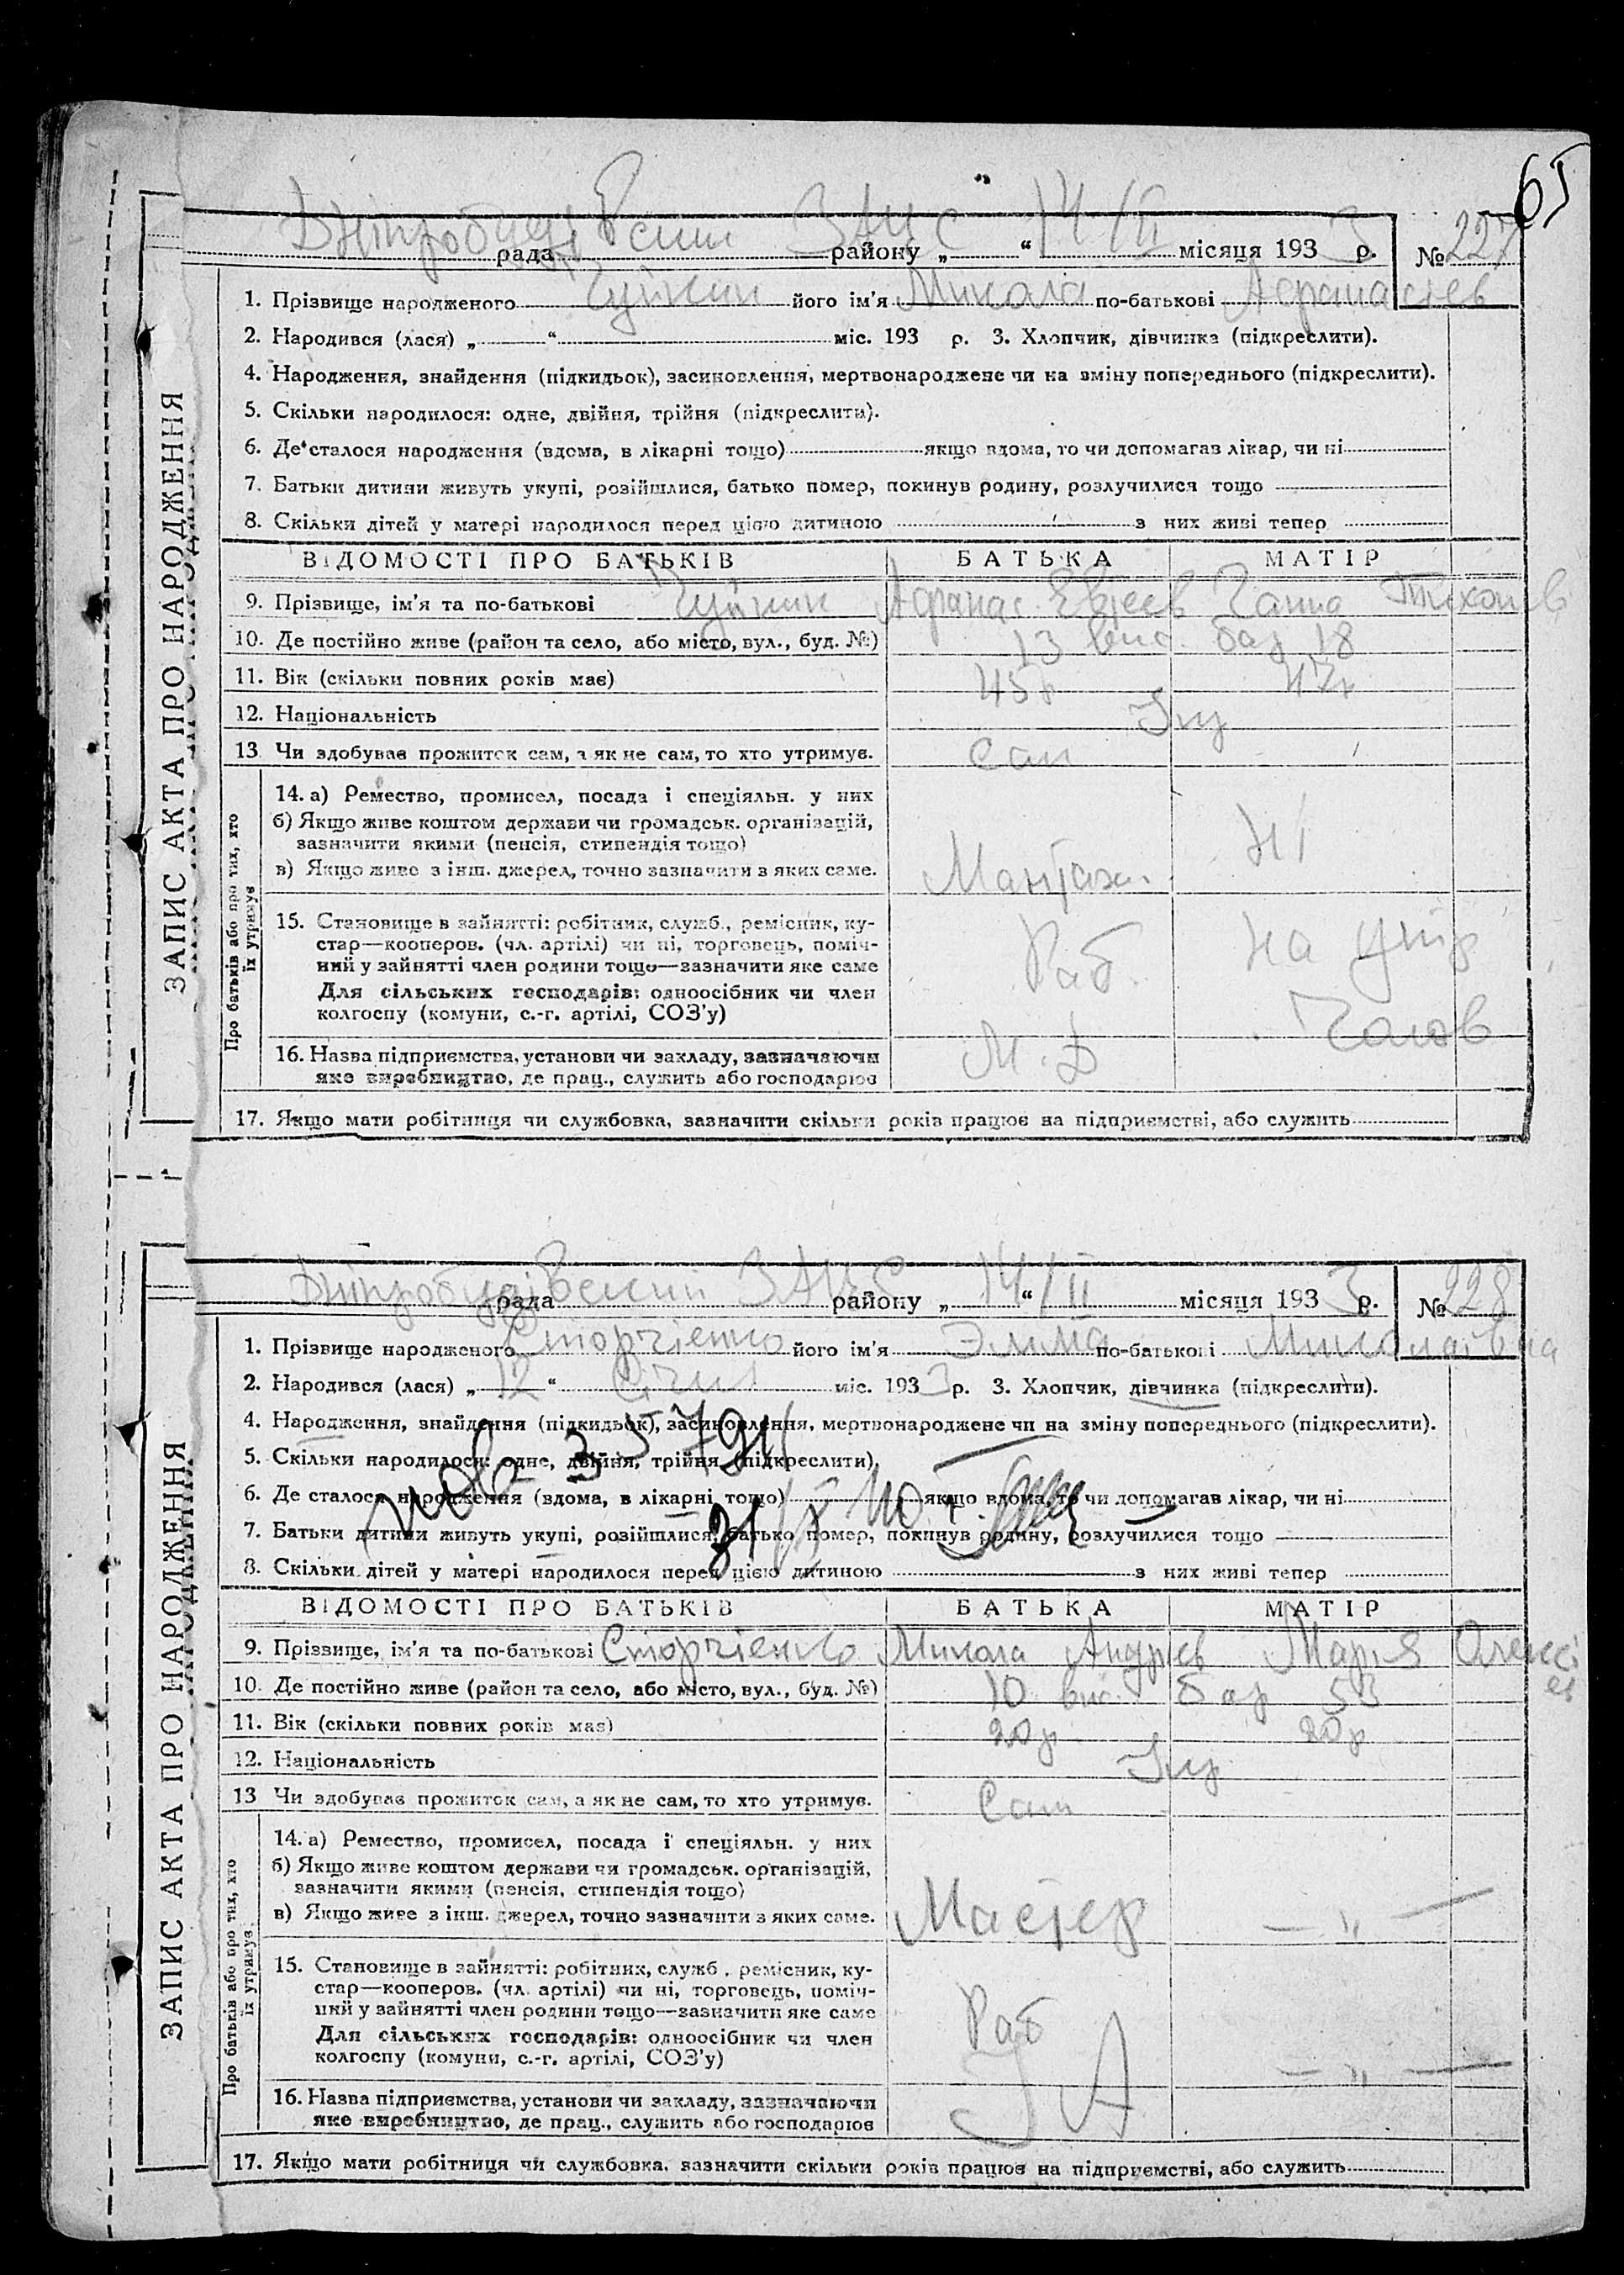 65
Дніпробудівський ЗАЦС
рада району „ 14/II “ місяця 193 3 р. № 227
1. Прізвище народженого його ім'я Микола по-батькові Афанасіев
2. Народився (лася) „ “ міс. 193 р. 3. Хлопчик, дівчинка (підкреслити).
4. Народження, знайдення (підкидьок), засиновлення, мертвонароджене чи на зміну попереднього (підкреслити).
5. Скільки народилося: одне, двійня, трійня (підкреслити).
6. Де сталося народження (вдома, в лікарні тощо) якщо вдома, то чи допомагав лікар, чи ні
7. Батьки дитини живуть укупі, розійшлися, батько помер, покинув родину, розлучилися тощо
8. Скільки дітей у матері народилося перед цією дитиною з них живі тепер
ВІДОМОСТІ ПРО БАТЬКІВ БАТЬКА МАТІР
9. Прізвище, ім'я та по-батькові Афанас Ганна Тихонів
10. Де постійно живе (район та село, або місто, вул., буд. №) 13 вис. бар 18
11. Вік (скільки повних років має) 45р 42р
12. Національність Укр
13 Чи здобував прожиток сам, а як не сам, то хто утримує. Сам
14. а) Ремество, промисел, посада і спеціяльн. у них
б) Якщо живе коштом держави чи громадськ. організацій,
зазначити якими (пенсія, стипендія тощо)
в) Якщо живе з інш. джерел, точно зазначити з яких саме. Монтаж. Ні
15. Становище в зайнятті: робітник, служб., ремісник, ку-
стар—кооперов. (чл. артілі) чи ні, торговець, поміч-
ний у зайнятті член родини тощо—зазначити яке саме Раб. на утр
Для сільських господарів: одноосібник чи член
колгоспу (комуни, с.-г. артілі, СОЗ'у) Чолов
16. Назва підприємства, установи чи закладу, зазначаючи М. Б
яке виробництво, де прац., служить або господарює
17. Якщо мати робітниця чи службовка, зазначити скільки років працює на підприємстві, або служить
ЗАПИС АКТА ПРО НАРОДЖЕННЯ
Про батьків або про тих, хто
їх утримує
Дніпробудівський ЗАЦС
рада району „ 14/II “ місяця 193 3 р. № 228
1. Прізвище народженого Сторчіенко його ім'я Элма по-батькові Миколаівна
2. Народився (лася) „ 12 “ Січня міс. 193 3 р. 3. Хлопчик, дівчинка (підкреслити).
4. Народження, знайдення (підкидьок), засиновлення, мертвонароджене чи на зміну попереднього (підкреслити).
5. Скільки народилося: одне, двійня, трійня (підкреслити).
6. Де сталося народження (вдома, в лікарні тощо) якщо вдома, то чи допомагав лікар, чи ні
7. Батьки дитини живуть укупі, розійшлися, батько помер, покинув родину, розлучилися тощо
8. Скільки дітей у матері народилося перед цією дитиною з них живі тепер
ВІДОМОСТІ ПРО БАТЬКІВ БАТЬКА МАТІР
9. Прізвище, ім'я та по-батькові Сторчіенко Микола Андрієв Марія Олексієв
10. Де постійно живе (район та село, або місто, вул., буд. №) 10 вис. бар 53
11. Вік (скільки повних років має) 20р 20р
12. Національність Укр
13 Чи здобував прожиток сам, а як не сам, то хто утримує. Сам
14. а) Ремество, промисел, посада і спеціяльн. у них
б) Якщо живе коштом держави чи громадськ. організацій,
зазначити якими (пенсія, стипендія тощо)
в) Якщо живе з інш. джерел, точно зазначити з яких саме. Мастер — „ —
15. Становище в зайнятті: робітник, служб., ремісник, ку-
стар—кооперов. (чл. артілі) чи ні, торговець, поміч-
ний у зайнятті член родини тощо—зазначити яке саме Раб
Для сільських господарів: одноосібник чи член
колгоспу (комуни, с.-г. артілі, СОЗ'у) — „ —
16. Назва підприємства, установи чи закладу, зазначаючи
яке виробництво, де прац., служить або господарює
17. Якщо мати робітниця чи службовка, зазначити скільки років працює на підприємстві, або служить
ЗАПИС АКТА ПРО НАРОДЖЕННЯ
Про батьків або про тих, хто
їх утримує